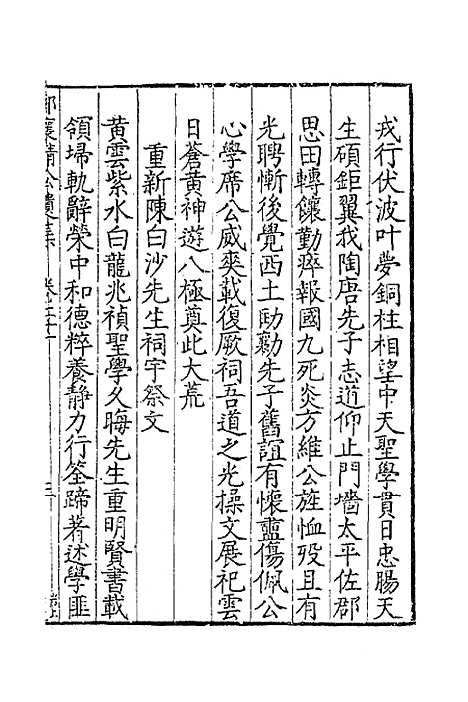 戎行伏波叶夢銅柱相望中天聖學貫日忠腸天
生碩鉅翼我陶唐先子志道仰止門墻太平佐郡
思田轉饟勤瘁報國九死炎方維公旌恤歿且有
光聘慚後覺西土助勷先子舊誼有懷衋傷佩公
心學席公威爽載復厥祠吾道之光操文展祀雲
日蒼黃神遊八極奠此大荒
重新陳白沙先生祠宇祭文
黃雲紫水白龍兆禎聖學久晦先生重明賢書載
領埽軌辭榮中和德粹養靜力行筌蹄著述學匪